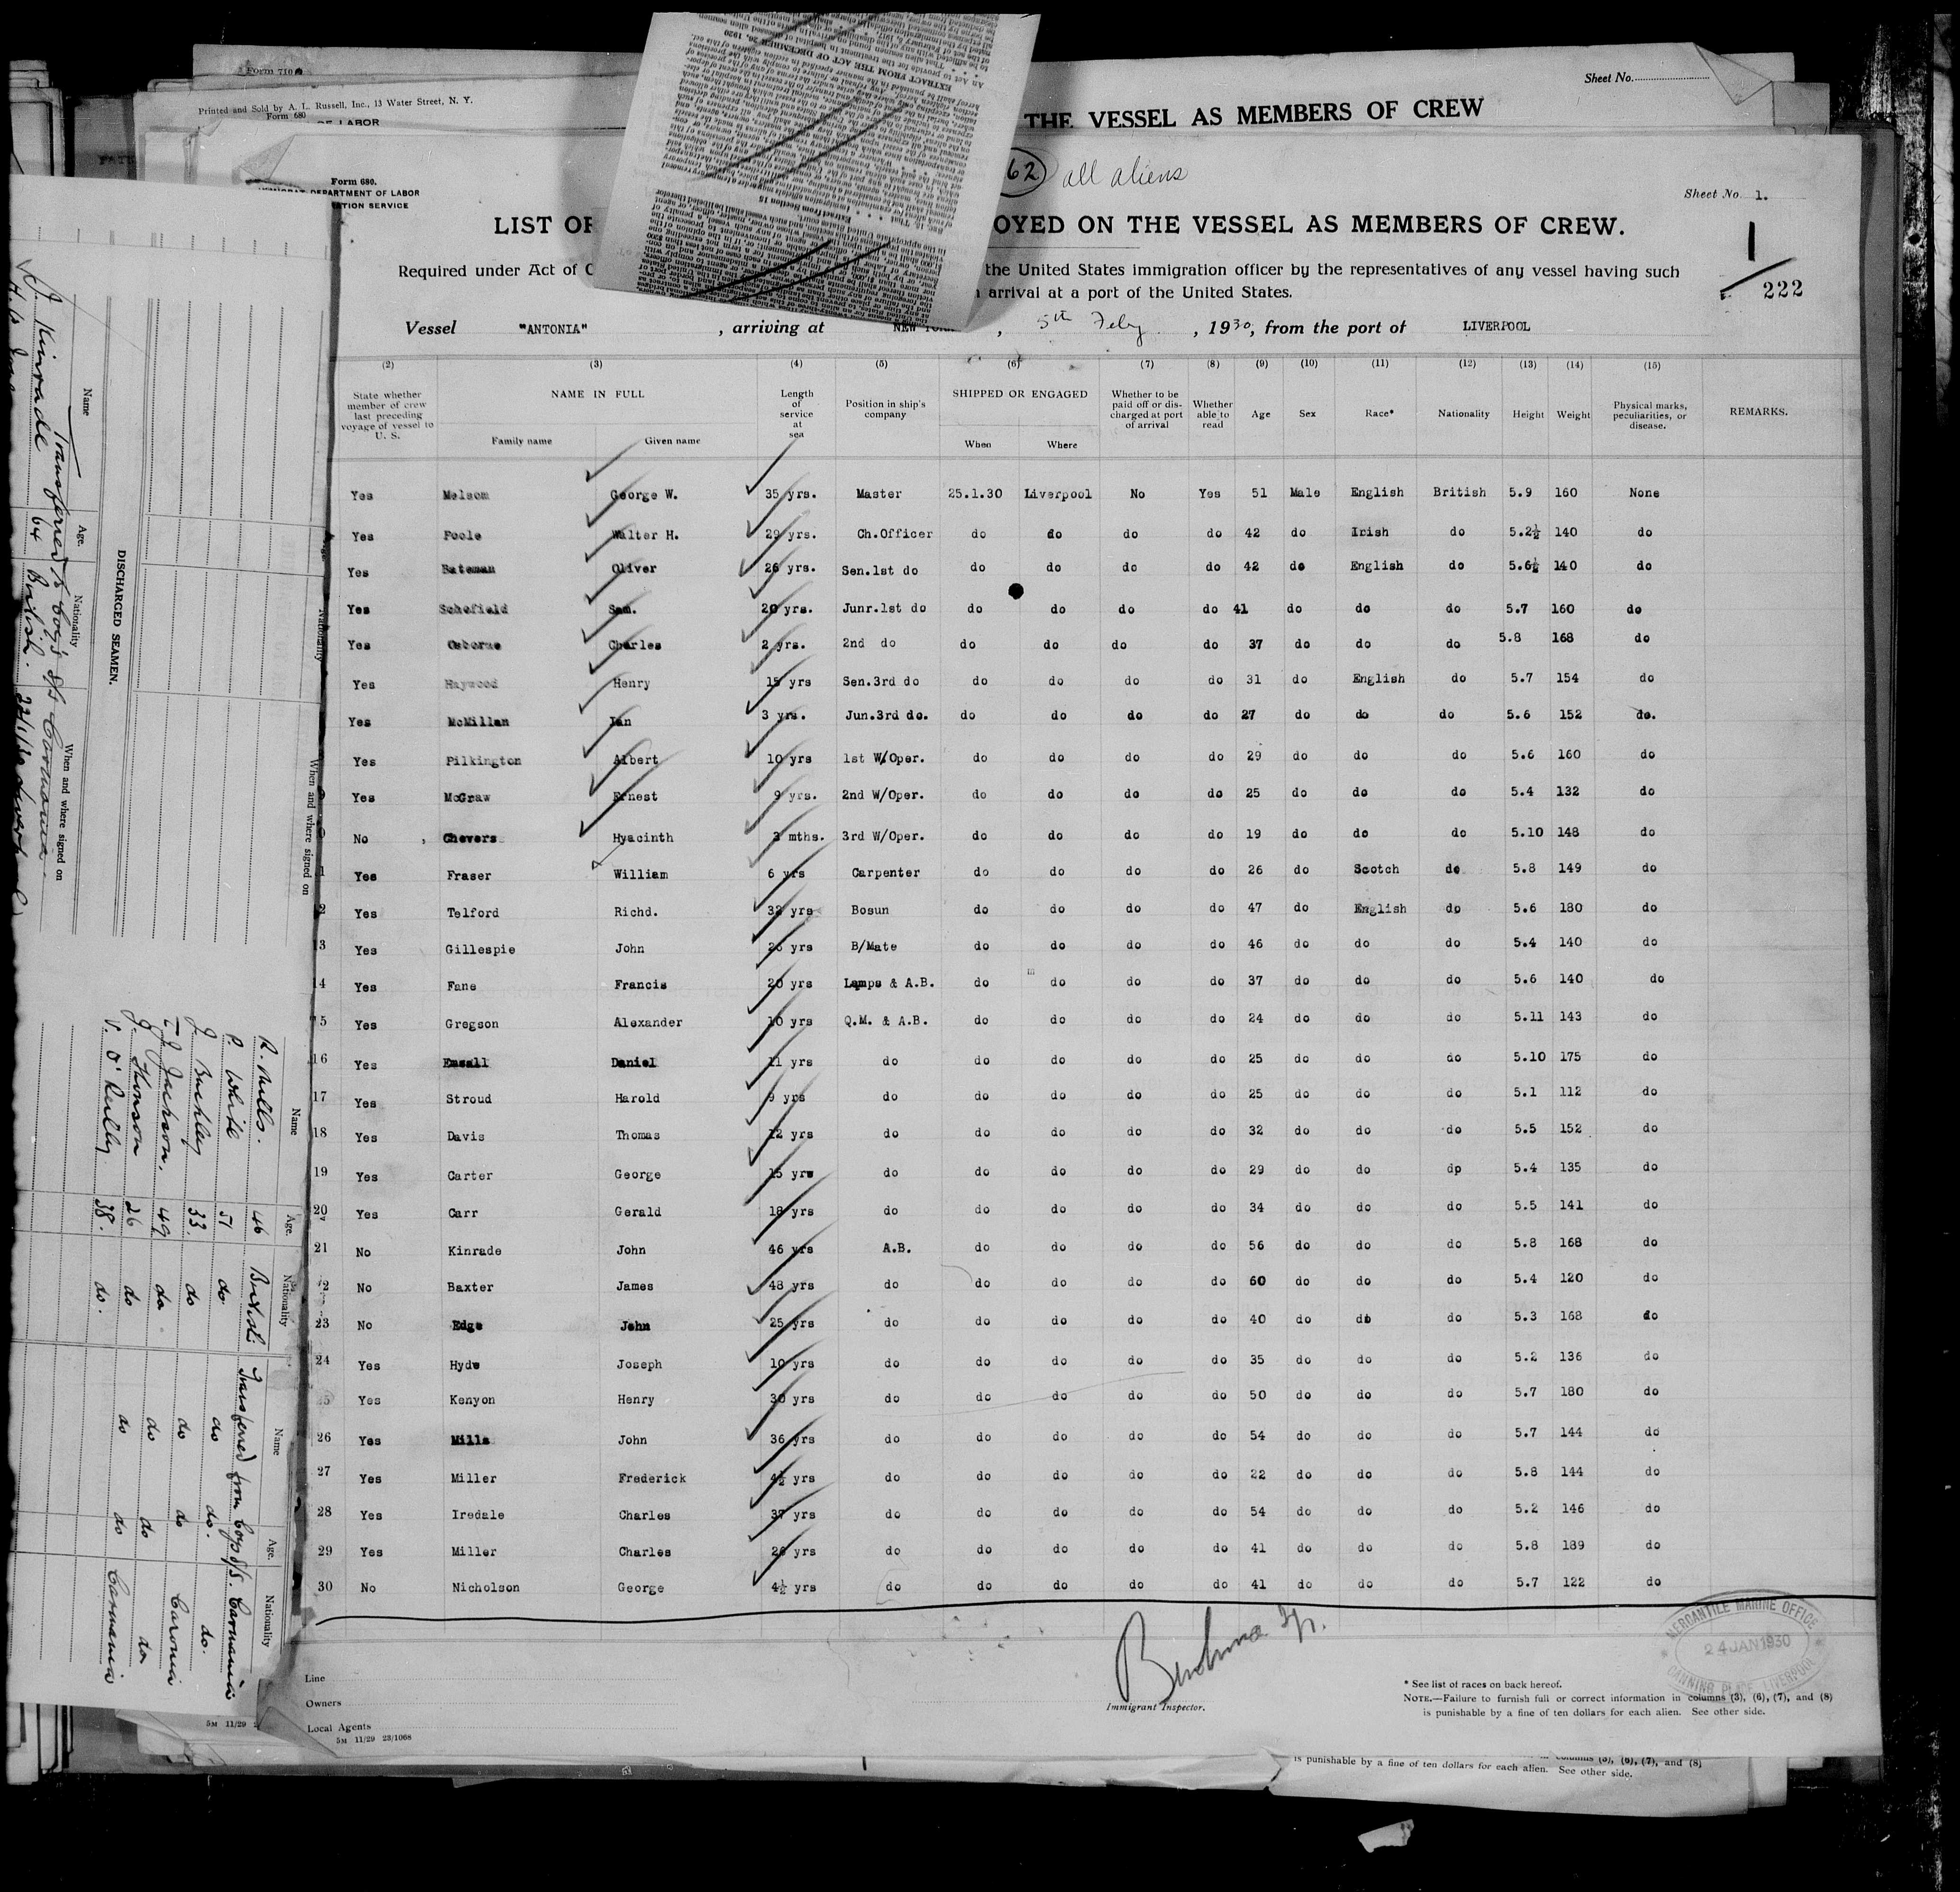 Form 710
Printed and Sold by A. L. Russell, Inc., 13 Water Street, N. Y.
Form 680
OF LABOR
Sheet No.
THE VESSEL AS MEMBERS OF CREW
EXTRACT FROM THE ACT OF DECEMBER 26, 1920
Extract from Section 15
62 all aliens
Form 680.
DEPARTMENT OF LABOR
ATION SERVICE
Sheet No. 1.
LIST OF OYED ON THE VESSEL AS MEMBERS OF CREW.
Required under Act of C the United States immigration officer by the representatives of any vessel having such
arrival at a port of the United States.
1
222
Vessel "ANTONIA", arriving at NEW YORK, 5th Feby, 1930, from the port of LIVERPOOL
(2) (3) (4) (5) (6) (7) (8) (9) (10) (11) (12) (13) (14) (15)
State whether member of crew last preceding voyage of vessel to U. S. NAME IN FULL Family name Given name Length of service at sea Position in ship's company SHIPPED OR ENGAGED When Where Whether to be paid off or discharged at port of arrival Whether able to read Age Sex Race* Nationality Height Weight Physical marks, peculiarities, or disease. REMARKS.
Yes Melsom George W. 35 yrs. Master 25.1.30 Liverpool No Yes 51 Male English British 5.9 160 None
Yes Poole Walter H. 29 yrs. Ch.Officer do do do do 42 do Irish do 5.2½ 140 do
Yes Bateman Oliver 26 yrs. Sen.1st do do do do do 42 do English do 5.6½ 140 do
Yes Schofield Sam. 20 yrs. Junr.1st do do do do do 41 do do do 5.7 160 do
Yes Osborne Charles 2 yrs. 2nd do do do do do 37 do do do 5.8 168 do
Yes Haywood Henry 15 yrs Sen.3rd do do do do do 31 do English do 5.7 154 do
Yes McMillan Ian 3 yrs. Jun.3rd do. do do do do 27 do do do 5.6 152 do.
Yes Pilkington Albert 10 yrs 1st W/Oper. do do do do 29 do do do 5.6 160 do
Yes McGraw Ernest 9 yrs. 2nd W/Oper. do do do do 25 do do do 5.4 132 do
No Chevers Hyacinth 3 mths. 3rd W/Oper. do do do do 19 do do do 5.10 148 do
1 Yes Fraser William 6 yrs Carpenter do do do do 26 do Scotch do 5.8 149 do
2 Yes Telford Richd. 32 yrs Bosun do do do do 47 do English do 5.6 180 do
13 Yes Gillespie John 26 yrs B/Mate do do do do 46 do do do 5.4 140 do
14 Yes Fane Francis 20 yrs Lamps & A.B. do do do do 37 do do do 5.6 140 do
15 Yes Gregson Alexander 10 yrs Q.M. & A.B. do do do do 24 do do do 5.11 143 do
16 Yes Emsall Daniel 11 yrs do do do do do 25 do do do 5.10 175 do
17 Yes Stroud Harold 9 yrs do do do do do 25 do do do 5.1 112 do
18 Yes Davis Thomas 12 yrs do do do do do 32 do do do 5.5 152 do
19 Yes Carter George 15 yrs do do do do do 29 do do dp 5.4 135 do
20 Yes Carr Gerald 18 yrs do do do do do 34 do do do 5.5 141 do
21 No Kinrade John 46 yrs A.B. do do do do 56 do do do 5.8 168 do
2 No Baxter James 48 yrs do do do do do 60 do do do 5.4 120 do
23 No Edge John 25 yrs do do do do do 40 do do do 5.3 168 do
24 Yes Hyde Joseph 10 yrs do do do do do 35 do do do 5.2 136 do
25 Yes Kenyon Henry 30 yrs do do do do do 50 do do do 5.7 180 do
26 Yes Mills John 36 yrs do do do do do 54 do do do 5.7 144 do
27 Yes Miller Frederick 4½ yrs do do do do do 22 do do do 5.8 144 do
28 Yes Iredale Charles 37 yrs do do do do do 54 do do do 5.2 146 do
29 Yes Miller Charles 26 yrs do do do do do 41 do do do 5.8 189 do
30 No Nicholson George 4½ yrs do do do do do 41 do do do 5.7 122 do
Immigrant Inspector.
MERCANTILE MARINE OFFICE
24 JAN 1930
CANNING PLACE LIVERPOOL
Line
Owners
Local Agents
5M 11/29 23/1068
* See list of races on back hereof.
NOTE.—Failure to furnish full or correct information in columns (3), (6), (7), and (8)
is punishable by a fine of ten dollars for each alien. See other side.
columns (3), (6), (7), and (8)
is punishable by a fine of ten dollars for each alien. See other side.
5M 11/29
DISCHARGED SEAMEN.
Name Age. Nationality When and where signed on
Transferred to Coy's S/S Carmania
J. Kinrade 64 British.
Nationality When and where signed on
Name Age. Nationality Name Age. Nationality
R. Mills. 46 British Transferred from Coys S/S. Carmania
P. White 51 do. do do.
J. Buckley 33. do do do do.
T. J. Jackson. 49 do. do do Caronia
J. Thomson 26 do do do
V. O'Reilly 38. do. do do Carmania